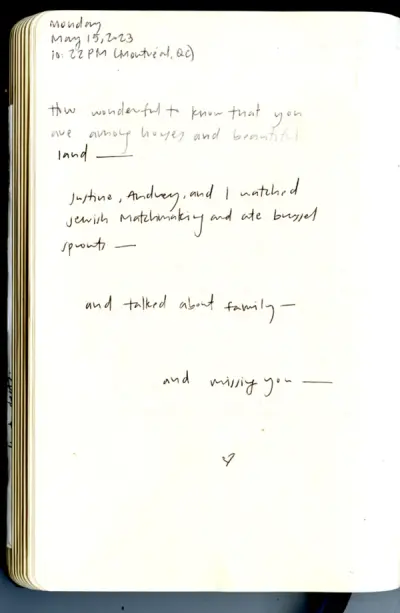 Monday
May 15, 2023
10:22 PM (Montréal, QC)
How wonderful to know that you
are among horses and beautiful
land —
Justine, Audrey, and I watched
Jewish Matchmaking and ate brussel
sprouts —
and talked about family —
and missing you —